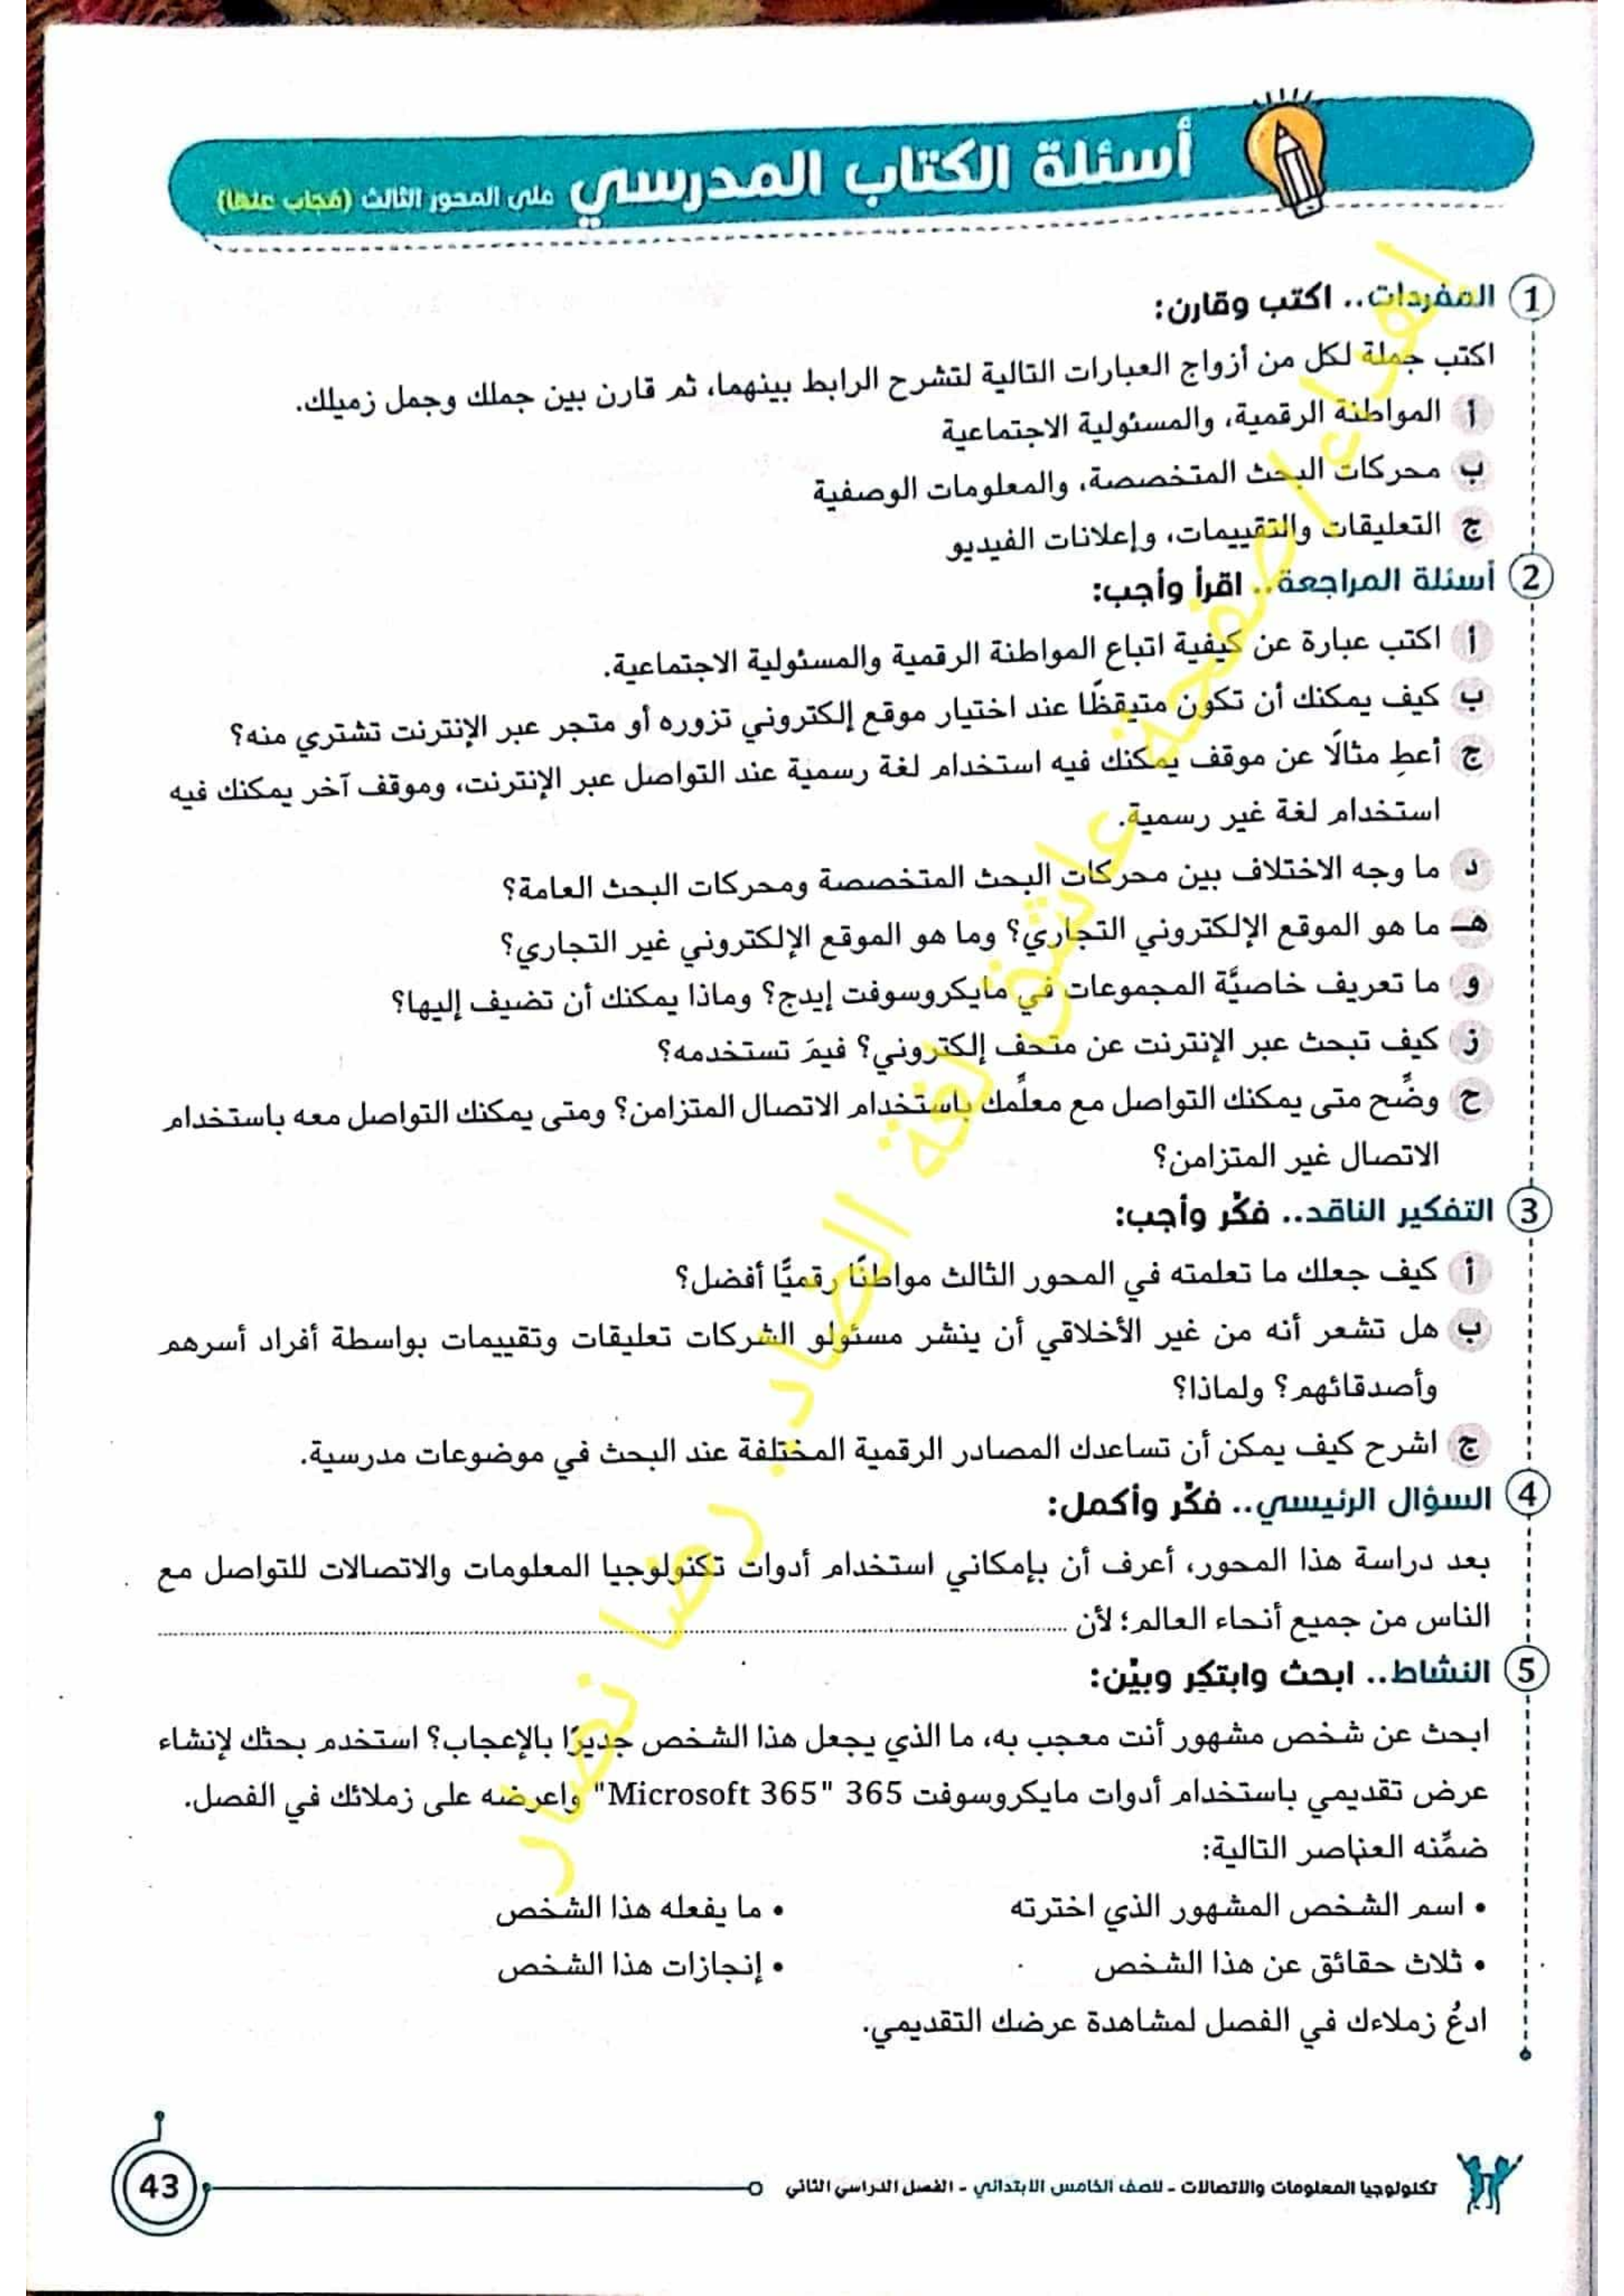 أسئلة الكتاب المدرسي على المحور الثالث (مُجاب عنها)
1 المفردات.. اكتب وقارن:
اكتب جملة لكل من أزواج العبارات التالية لتشرح الرابط بينهما، ثم قارن بين جملك وجمل زميلك.
أ المواطنة الرقمية، والمسئولية الاجتماعية
ب محركات البحث المتخصصة، والمعلومات الوصفية
ج التعليقات والتقييمات، وإعلانات الفيديو
2 أسئلة المراجعة.. اقرأ وأجب:
أ اكتب عبارة عن كيفية اتباع المواطنة الرقمية والمسئولية الاجتماعية.
ب كيف يمكنك أن تكون متيقظًا عند اختيار موقع إلكتروني تزوره أو متجر عبر الإنترنت تشتري منه؟
ج أعطِ مثالًا عن موقف يمكنك فيه استخدام لغة رسمية عند التواصل عبر الإنترنت، وموقف آخر يمكنك فيه
استخدام لغة غير رسمية.
د ما وجه الاختلاف بين محركات البحث المتخصصة ومحركات البحث العامة؟
هـ ما هو الموقع الإلكتروني التجاري؟ وما هو الموقع الإلكتروني غير التجاري؟
و ما تعريف خاصيَّة المجموعات في مايكروسوفت إيدج؟ وماذا يمكنك أن تضيف إليها؟
ز كيف تبحث عبر الإنترنت عن متحف إلكتروني؟ فيمَ تستخدمه؟
ح وضِّح متى يمكنك التواصل مع معلِّمك باستخدام الاتصال المتزامن؟ ومتى يمكنك التواصل معه باستخدام
الاتصال غير المتزامن؟
3 التفكير الناقد.. فكِّر وأجب:
أ كيف جعلك ما تعلمته في المحور الثالث مواطنًا رقميًّا أفضل؟
ب هل تشعر أنه من غير الأخلاقي أن ينشر مسئولو الشركات تعليقات وتقييمات بواسطة أفراد أسرهم
وأصدقائهم؟ ولماذا؟
ج اشرح كيف يمكن أن تساعدك المصادر الرقمية المختلفة عند البحث في موضوعات مدرسية.
4 السؤال الرئيسي.. فكِّر وأكمل:
بعد دراسة هذا المحور، أعرف أن بإمكاني استخدام أدوات تكنولوجيا المعلومات والاتصالات للتواصل مع
الناس من جميع أنحاء العالم؛ لأن ........................
5 النشاط.. ابحث وابتكِر وبيِّن:
ابحث عن شخص مشهور أنت معجب به، ما الذي يجعل هذا الشخص جديرًا بالإعجاب؟ استخدم بحثك لإنشاء
عرض تقديمي باستخدام أدوات مايكروسوفت 365 "Microsoft 365" واعرضه على زملائك في الفصل.
ضمِّنه العناصر التالية:
• اسم الشخص المشهور الذي اخترته • ما يفعله هذا الشخص
• ثلاث حقائق عن هذا الشخص • إنجازات هذا الشخص
ادعُ زملاءك في الفصل لمشاهدة عرضك التقديمي.
تكنولوجيا المعلومات والاتصالات - للصف الخامس الابتدائي - الفصل الدراسي الثاني
43
صفحة عاشق لغة الضاد. رضا نصار